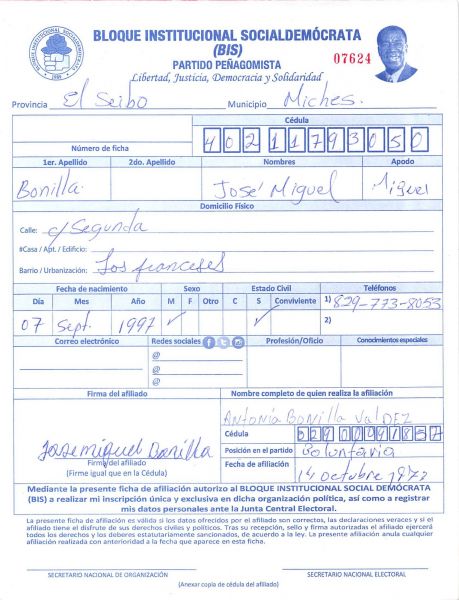 BLOQUE INSTITUCIONAL SOCIALDEMÓCRATA
(BIS)
07624
PARTIDO PEÑAGOMISTA
Libertad, Justicia, Democracia y Solidaridad
Provincia El Seibo Municipio Miches.
Cédula
Número de ficha 40211793050
1er. Apellido 2do. Apellido Nombres Apodo
Bonilla José Miguel Miguel
Domicilio Físico
Calle: c/ Segunda
#Casa / Apt. / Edificio:
Barrio / Urbanización: Los franceses
Fecha de nacimiento Sexo Estado Civil Teléfonos
Día Mes Año M F Otro C S Conviviente 1) 829-773-8053
07 Sept. 1997 ✓ ✓ 2)
Correo electrónico Redes sociales Profesión/Oficio Conocimientos especiales
@
@
@
Firma del afiliado Nombre completo de quien realiza la afiliación
Antonia Bonilla Valdez
Cédula
Jose miguel Bonilla Posición en el partido Boluntaria
Firma del afiliado
(Firme igual que en la Cédula) Fecha de afiliación 14 octubre
Mediante la presente ficha de afiliación autorizo al BLOQUE INSTITUCIONAL SOCIAL DEMÓCRATA
(BIS) a realizar mi inscripción única y exclusiva en dicha organización política, así como a registrar
mis datos personales ante la Junta Central Electoral.
La presente ficha de afiliación es válida si los datos ofrecidos por el afiliado son correctos, las declaraciones veraces y si el
afiliado tiene el disfrute de sus derechos civiles y políticos. Tras su recepción, sello y firma autorizados el afiliado ejercerá
todos los derechos y los deberes estatutariamente sancionados, de acuerdo a la ley. La presente afiliación anula cualquier
afiliación realizada con anterioridad a la fecha que aparece en esta ficha.
SECRETARIO NACIONAL DE ORGANIZACIÓN SECRETARIO NACIONAL ELECTORAL
(Anexar copia de cédula del afiliado)